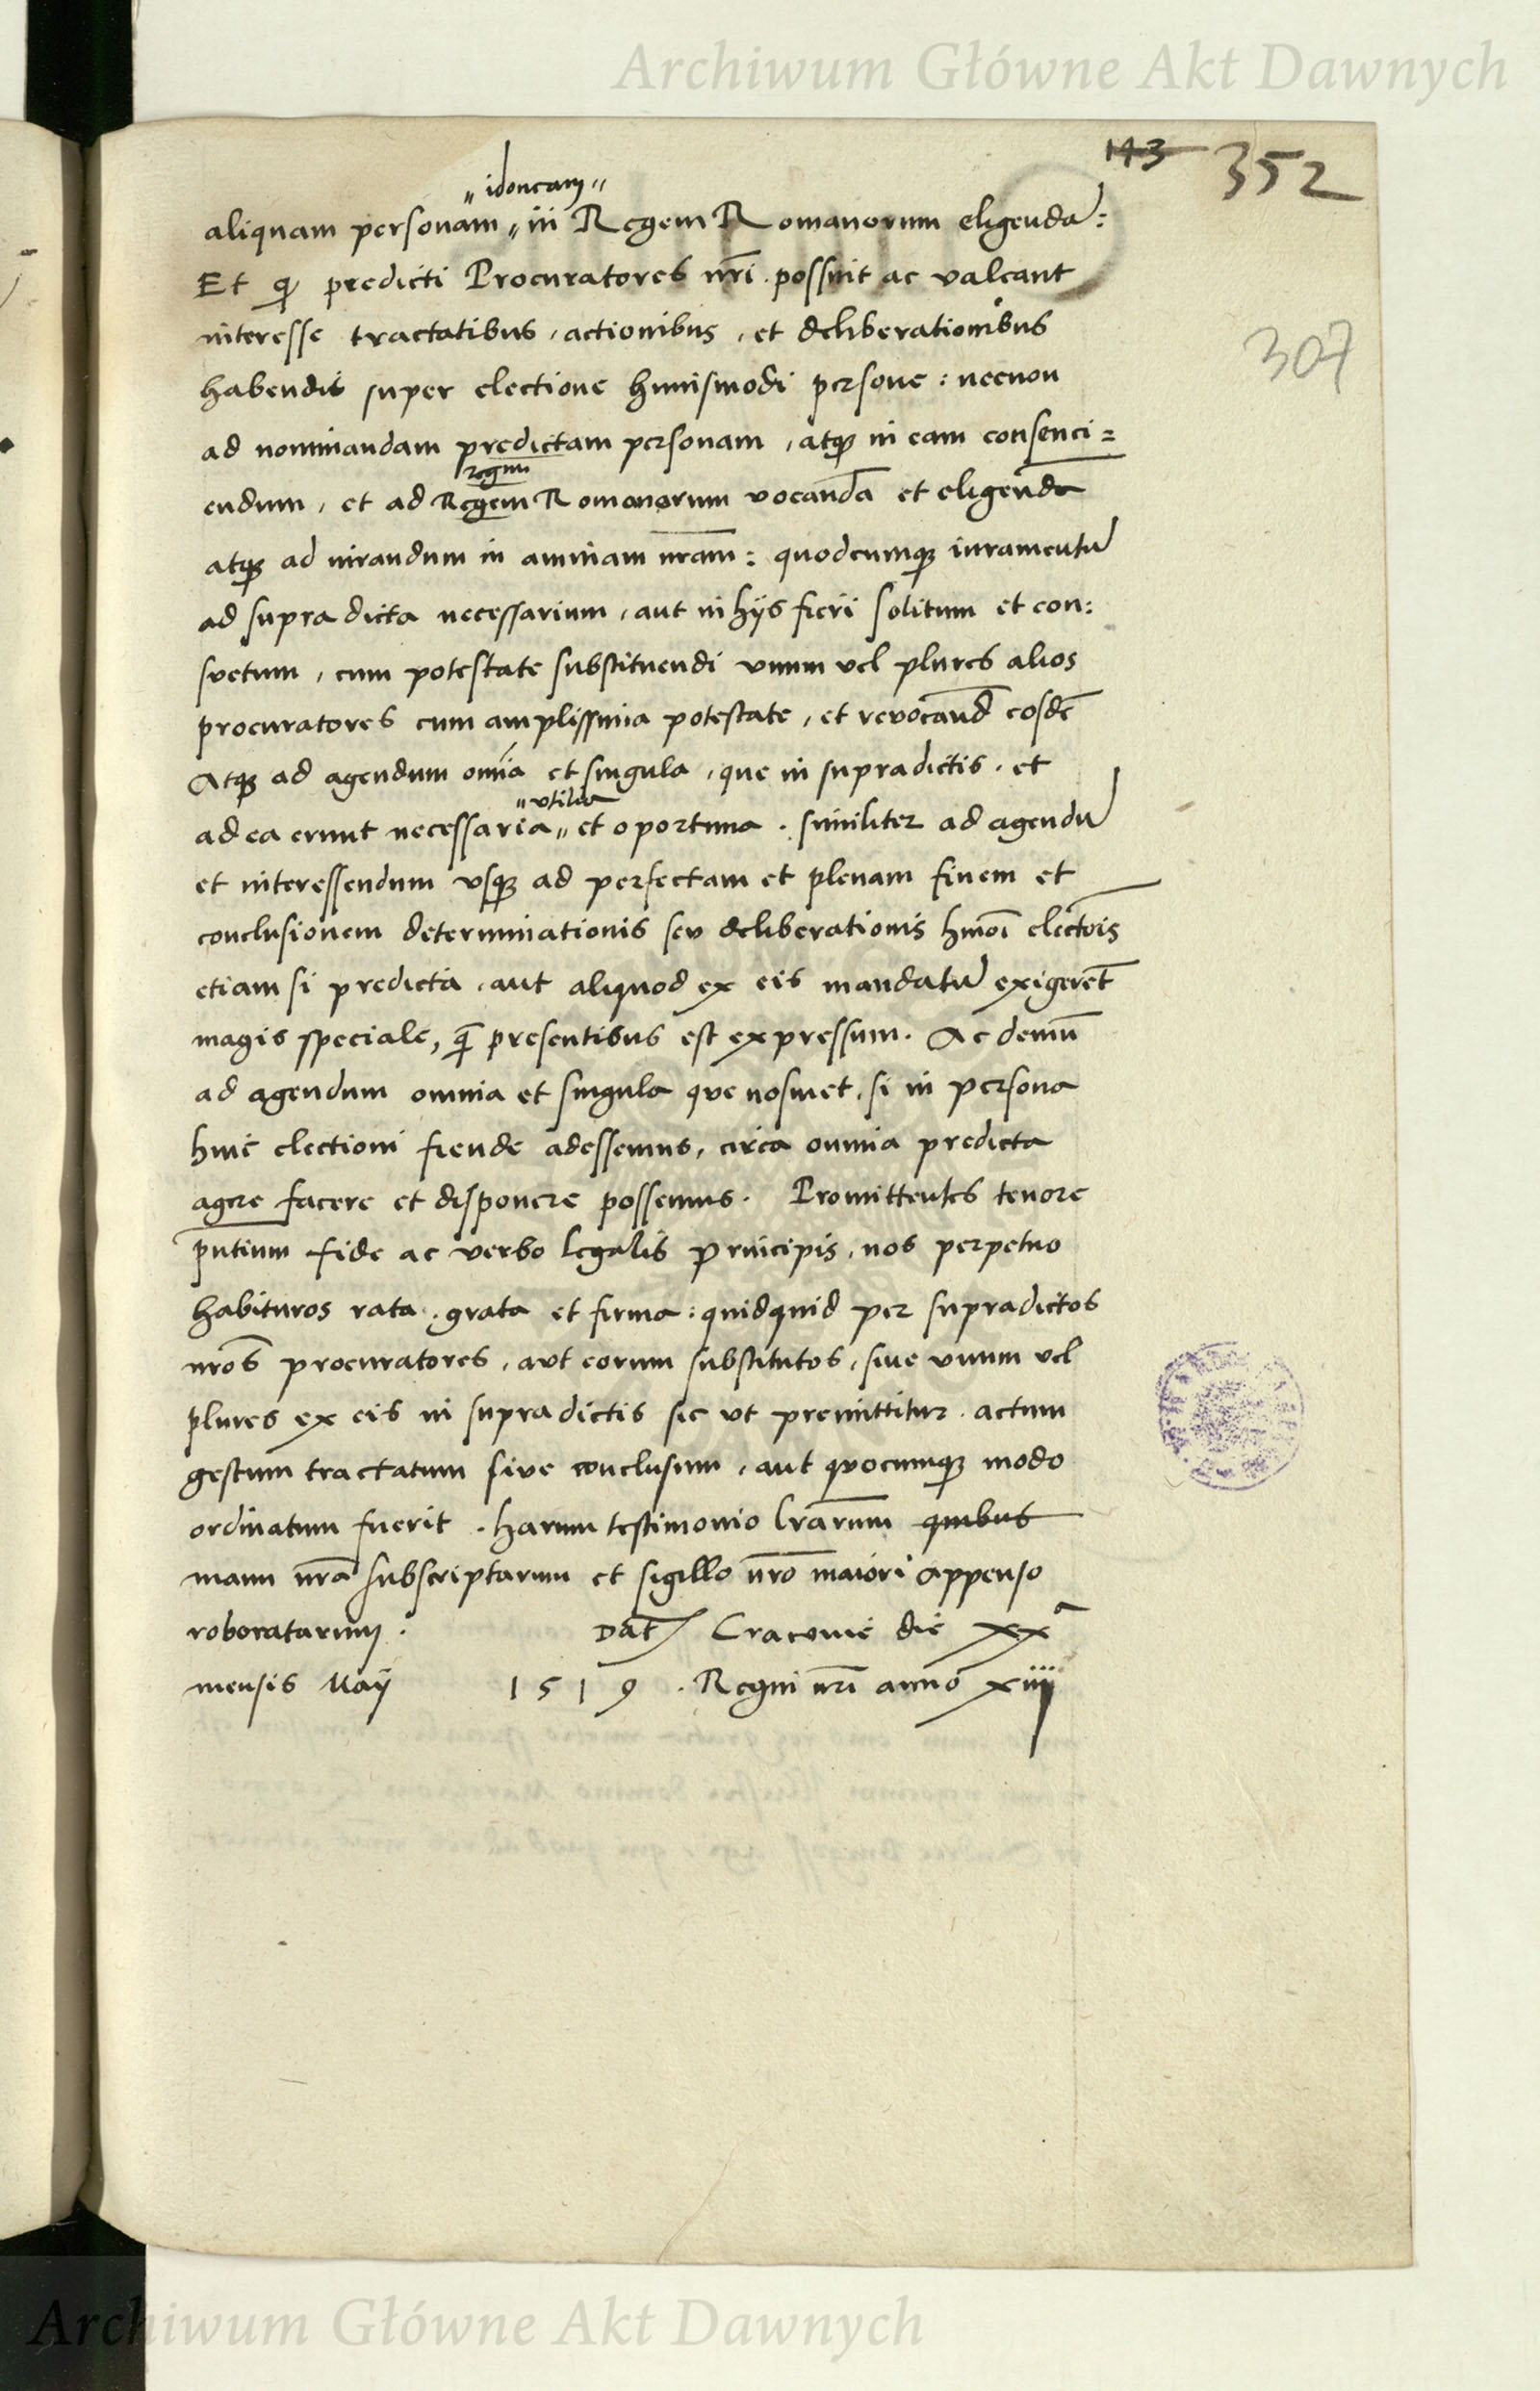 Archiwum Główne Akt Dawnych
143 352
307
"idoneam"
aliquam personam " in Regem Romanorum eligendā :
Et qꝫ predicti Procuratores nr̄i . possint ac valeant
interesse tractatibus , actionibus , et deliberationibus
habendis super electione huiusmodi persone : necnon
ad nominandam predictam personam , atqꝫ in eam consenci=
regnū
endum , et ad Regem Romanorum vocandā et eligendā
atqꝫ ad iurandum in animam nrām : quodcumqꝫ iuramentū
ad supra dicta necessarium , aut in hijs fieri solitum et con:
svetum , cum potestate substituendi vnum vel plures alios
procuratores cum amplissima potestate , et revocand̄ eosdē
Atqꝫ ad agendum om̄ia et singula , que in supradictis . et
"vtilia
ad ea erunt necessaria " et oportuna . similiter ad agendū
et interessendum vsqꝫ ad perfectam et plenam finem et
conclusionem determinationis sev deliberationis hmōi electōis
etiam si predicta , aut aliquod ex eis mandatū exigerēt
magis speciale, q̄ presentibus est expressum . Ac demū
ad agendum omnia et singula que nosmet , si in persona
huic electioni fiende adessemus , circa omnia predicta
agere facere et disponere possemus . Promittentes tenore
p̄ntium fide ac verbo legalis principis , nos perpetuo
habituros rata , grata et firma : quidquid per supradictos
nrōs procuratores , avt eorum substitutos , siue vnum vel
plures ex eis in supradictis sic vt premittitur . actum
gestum tractatum sive conclusum , aut qvocumqꝫ modo
ordinatum fuerit . harum testimonio lrārum quibus
manu nrā subscriptarum et sigillo nrō maiori appenso
roboratarum . Dat̄ Cracovie die xxᵃ
mensis Maij 1519 . Regni nr̄i anno xiij
Archiwum Główne Akt Dawnych